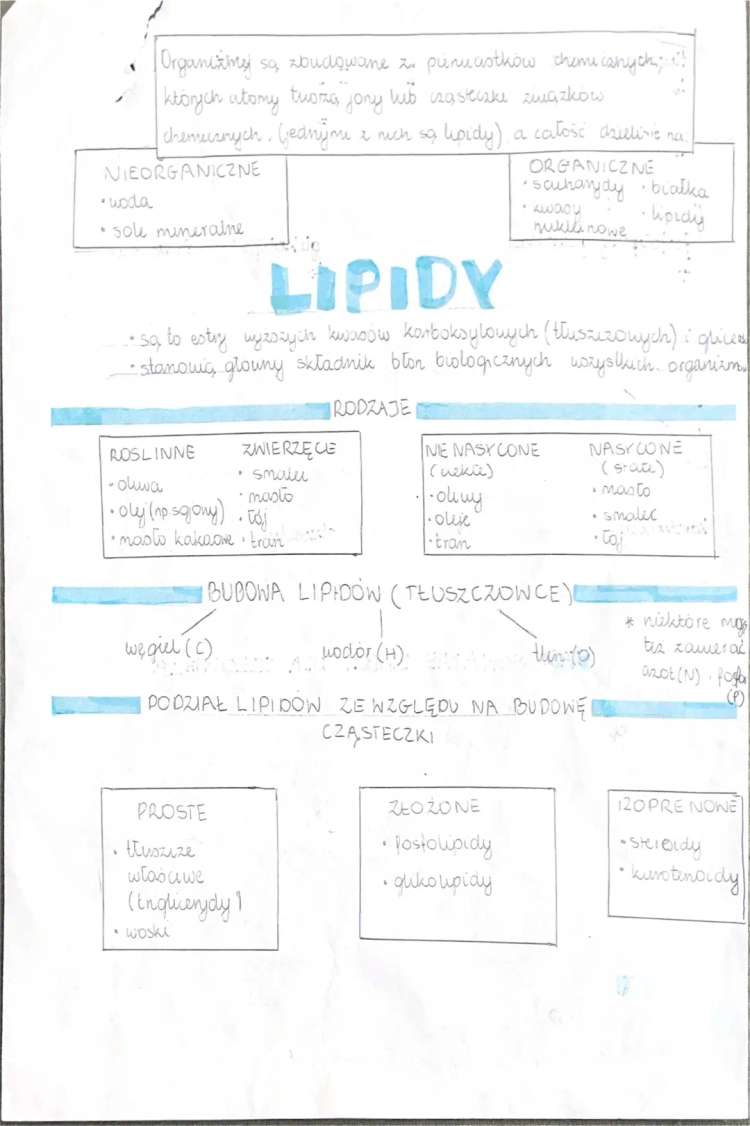 Organizmy są zbudowane z pierwiastków chemicznych,
których atomy tworzą jony lub cząsteczki związków
chemicznych. (jednymi z nich są lipidy) a całość dzieli się na:
NIEORGANICZNE
• woda
• sole mineralne
ORGANICZNE
• sacharydy • białka
• kwasy • lipidy
nukleinowe
LIPIDY
• są to estry wyższych kwasów karboksylowych (tłuszczowych) i
• stanowią główny składnik błon biologicznych wszystkich
RODZAJE
ROŚLINNE
• oliwa
• olej (np. sojowy)
• masło kakaowe
ZWIERZĘCE
• smalec
• masło
• łój
• tran
NIENASYCONE
(ciekłe)
• oliwy
• oleje
• tran
NASYCONE
(stałe)
• masło
• smalec
• łój
BUDOWA LIPIDÓW (TŁUSZCZOWCE)
węgiel (C) wodór (H) tlen (O)
* niektóre mogą
też zawierać
azot (N) i
(P)
PODZIAŁ LIPIDÓW ZE WZGLĘDU NA BUDOWĘ
CZĄSTECZKI
PROSTE
• tłuszcze
właściwe
(triglicerydy)
• woski
ZŁOŻONE
• fosfolipidy
• glikolipidy
IZOPRENOWE
• steroidy
• karotenoidy